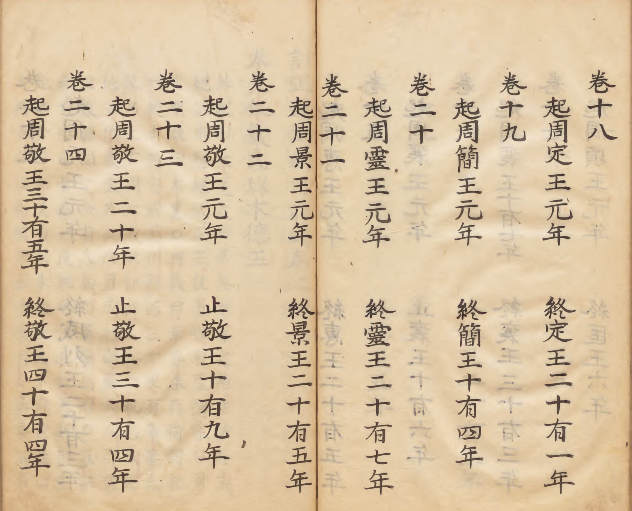 卷十八
起周定王元年 終定王二十有一年
卷十九
起周簡王元年 終簡王十有四年
卷二十
起周靈王元年 終靈王二十有七年
卷二十一
起周景王元年 終景王二十有五年
卷二十二
起周敬王元年 止敬王十有九年
卷二十三
起周敬王二十年 止敬王三十有四年
卷二十四
起周敬王三十有五年 終敬王四十有四年